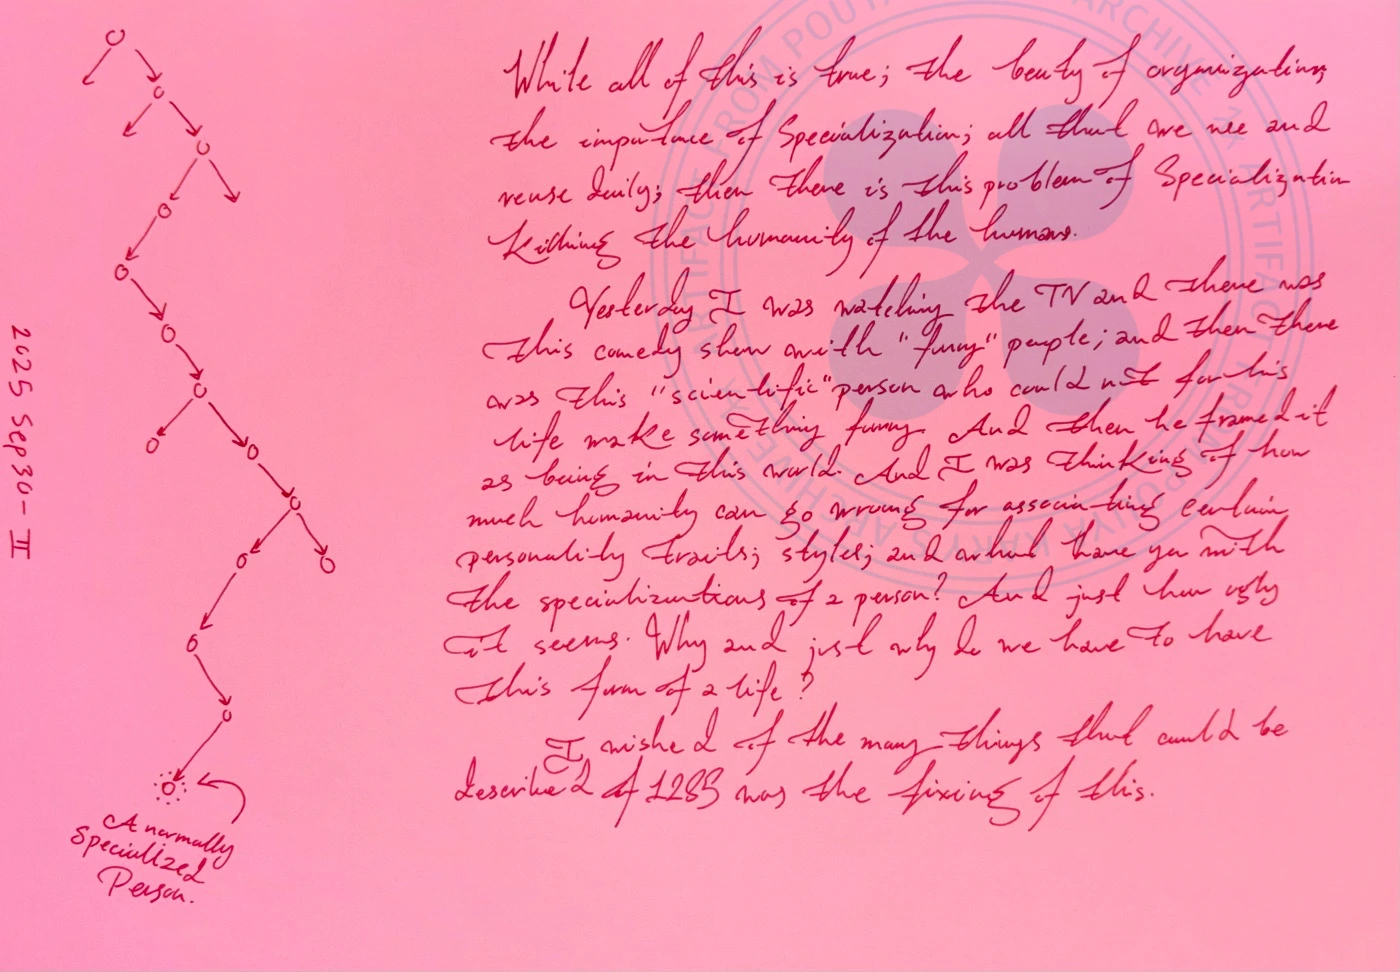 While all of this is true; the beuty of organization;
the importance of Specialization; all that we use and
reuse daily; then there is this problem of Specialization
killing the humanity of the humans.
Yesterday I was watching the TV and there was
this comedy show with "funny" people; and then there
was this "scientific" person who could not for his
life make something funny. And then he framed it
as being in this world. And I was thinking of how
much humanity can go wrong for associating certain
personality traits; styles; and what have you with
the specializations of a person? And just how ugly
it seems. Why and just why do we have to have
this form of a life?
I wished of the many things that could be
described of 1283 was the fixing of this.
A normally
Specialized
Person.
2025 Sep 30 - II
ARTIFACT FROM POUYA KARY'S ARCHIVE